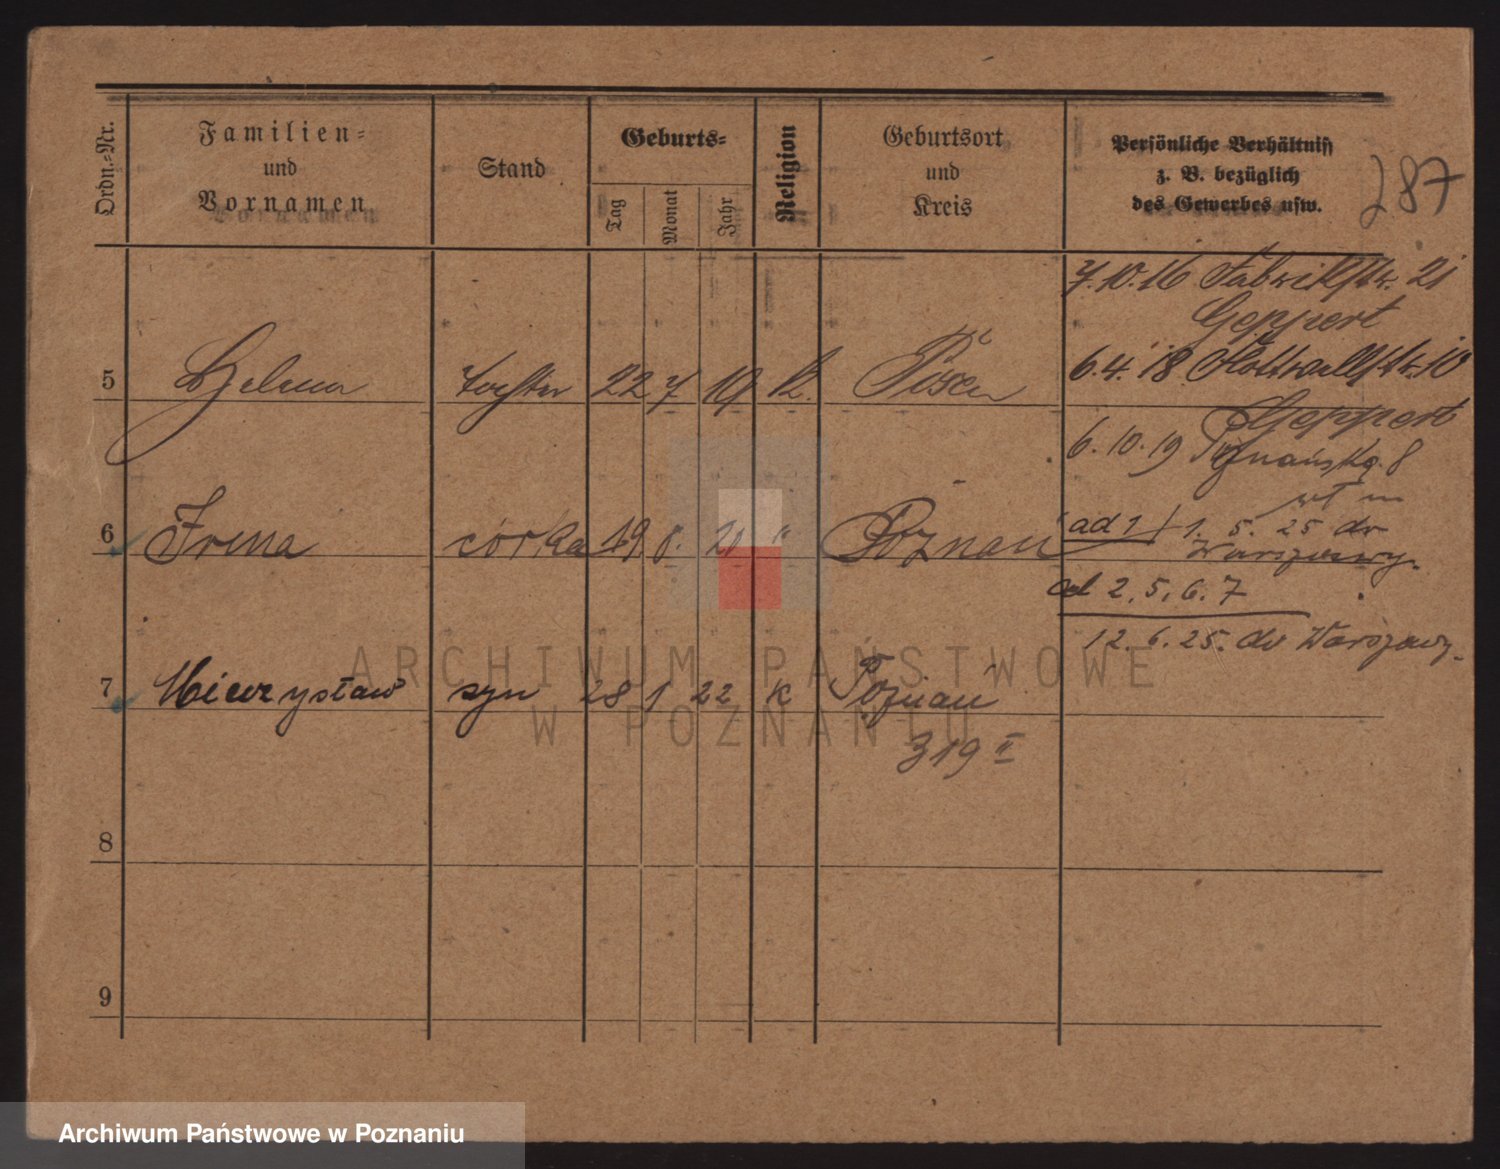 Ordn.-Nr.
Familien-
und
Vornamen
Stand
Geburts-
Tag
Monat
Jahr
Religion
Geburtsort
und
Kreis
Persönliche Verhältniss
z. B. bezüglich
des Gewerbes usw.
287
7.10.16 Fabrikstr. 21
Geppert
5 Helena Tochter 22 7 19 k. Posen
6.4.18 Str. 10
Geppert
6.10.19 Poznańska 8
6 Irena córka 19 8. 20 " Poznań
ad 1) 1. 5. 25 do
Warszawy.
ad 2, 5, 6. 7
12. 6. 25. do Warszawy.
7 Mieczysław syn 28 1 22 k Poznań
319 II
8
9
ARCHIWUM PAŃSTWOWE
W POZNANIU
Archiwum Państwowe w Poznaniu